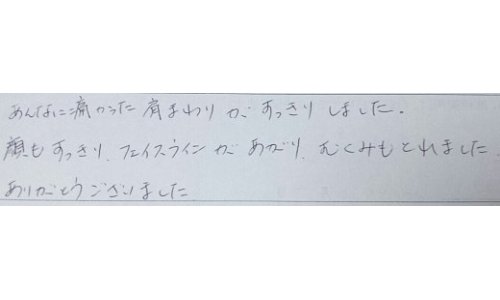 あんなに痛かった肩まわりがすっきりしました。
顔もすっきり、フェイスラインがあがり、むくみもとれました
ありがとうございました